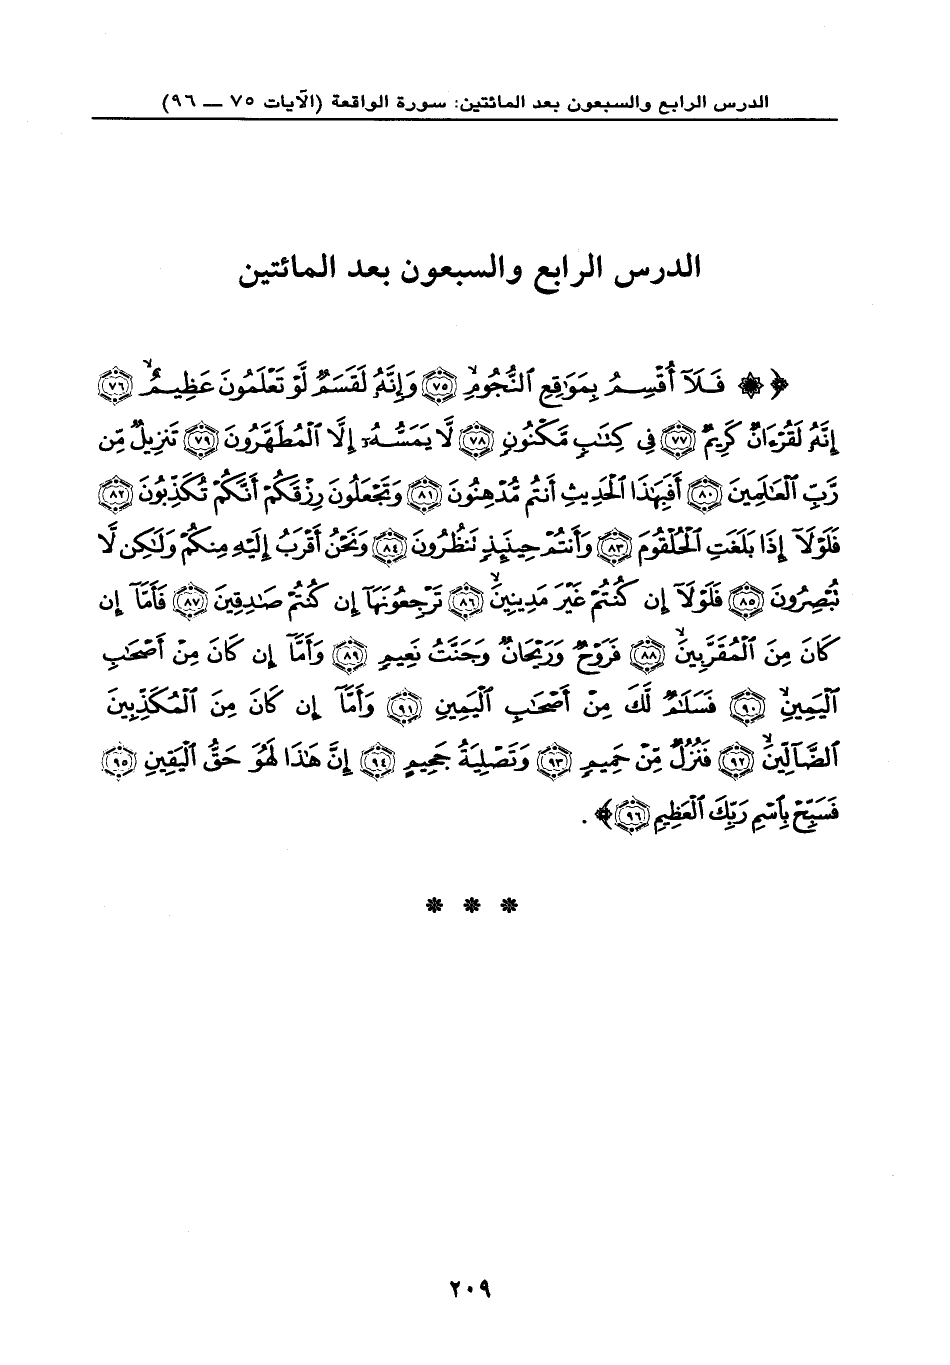 الدرس الرابع والسبعون بعد المائتين: سورة الواقعة (الآيات ٧٥ — ٩٦)
الدرس الرابع والسبعون بعد المائتين
﴿ ۞ فَلَآ أُقْسِمُ بِمَوَٰقِعِ ٱلنُّجُومِ ۙ (٧٥) وَإِنَّهُۥ لَقَسَمٌ لَّوْ تَعْلَمُونَ عَظِيمٌ ۙ (٧٦)
إِنَّهُۥ لَقُرْءَانٌ كَرِيمٌ (٧٧) فِى كِتَٰبٍ مَّكْنُونٍ (٧٨) لَّا يَمَسُّهُۥٓ إِلَّا ٱلْمُطَهَّرُونَ (٧٩) تَنزِيلٌ مِّن
رَّبِّ ٱلْعَٰلَمِينَ (٨٠) أَفَبِهَٰذَا ٱلْحَدِيثِ أَنتُم مُّدْهِنُونَ (٨١) وَتَجْعَلُونَ رِزْقَكُمْ أَنَّكُمْ تُكَذِّبُونَ (٨٢)
فَلَوْلَآ إِذَا بَلَغَتِ ٱلْحُلْقُومَ (٨٣) وَأَنتُمْ حِينَئِذٍ تَنظُرُونَ (٨٤) وَنَحْنُ أَقْرَبُ إِلَيْهِ مِنكُمْ وَلَٰكِن لَّا
تُبْصِرُونَ (٨٥) فَلَوْلَآ إِن كُنتُمْ غَيْرَ مَدِينِينَ ۙ (٨٦) تَرْجِعُونَهَآ إِن كُنتُمْ صَٰدِقِينَ (٨٧) فَأَمَّآ إِن
كَانَ مِنَ ٱلْمُقَرَّبِينَ ۙ (٨٨) فَرَوْحٌ وَرَيْحَانٌ وَجَنَّتُ نَعِيمٍ (٨٩) وَأَمَّآ إِن كَانَ مِنْ أَصْحَٰبِ
ٱلْيَمِينِ ۙ (٩٠) فَسَلَٰمٌ لَّكَ مِنْ أَصْحَٰبِ ٱلْيَمِينِ (٩١) وَأَمَّآ إِن كَانَ مِنَ ٱلْمُكَذِّبِينَ
ٱلضَّآلِّينَ ۙ (٩٢) فَنُزُلٌ مِّنْ حَمِيمٍ (٩٣) وَتَصْلِيَةُ جَحِيمٍ (٩٤) إِنَّ هَٰذَا لَهُوَ حَقُّ ٱلْيَقِينِ (٩٥)
فَسَبِّحْ بِٱسْمِ رَبِّكَ ٱلْعَظِيمِ (٩٦) ﴾ .
* * *
٢٠٩